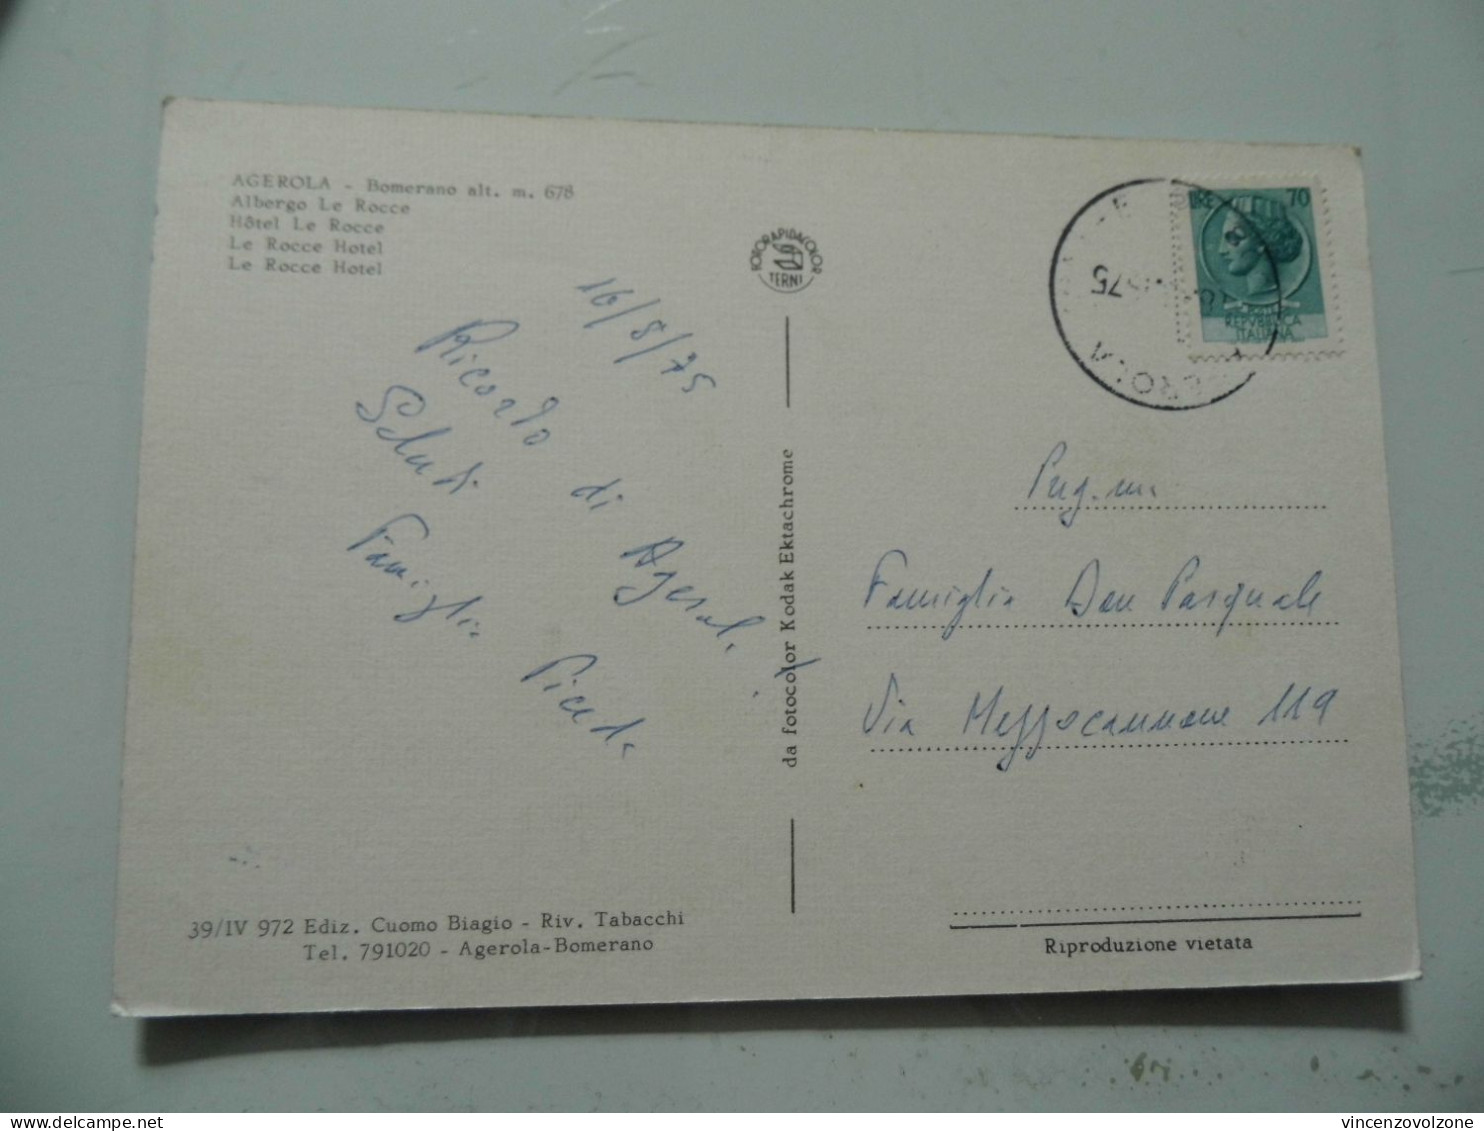 AGEROLA - Bomerano alt. m. 678
Albergo Le Rocce
Hôtel Le Rocce
Le Rocce Hotel
Le Rocce Hotel
FOTORAPIDACOLOR
TERNI
16/8/75
Ricordo di Agerola
Saluti
Famiglia
da fotocolor Kodak Ektachrome
LIRE 70
REPUBBLICA
ITALIANA
75
EROLA
Famiglia Don Pasquale
Via Mezzocannone 119
39/IV 972 Ediz. Cuomo Biagio - Riv. Tabacchi
Tel. 791020 - Agerola-Bomerano
Riproduzione vietata
vincenzovolzone